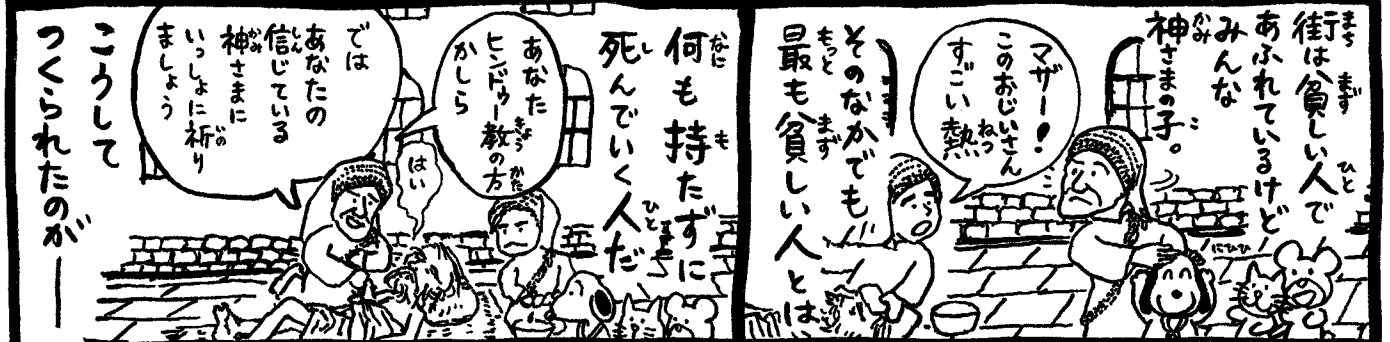 街は貧しい人で
あふれているけど
みんな
神さまの子。
マザー!
このおじいさん
すごい熱
にひひ
そのなかでも
最も貧しい人とは
何も持たずに
死んでいく人だ
あなた
ヒンドゥー教の方
かしら
はい
では
あなたの
信じている
神さまに
いっしょに祈り
ましょう
こうして
つくられたのが―